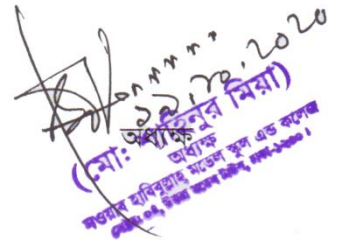 ১৯.১০.২০২০
অধ্যক্ষ
(মো: শাহিনুর মিয়া)
অধ্যক্ষ
নওয়াব হাবিবুল্লাহ মডেল স্কুল এন্ড কলেজ
উত্তরা মডেল টাউন, ঢাকা-১২৩০ ।